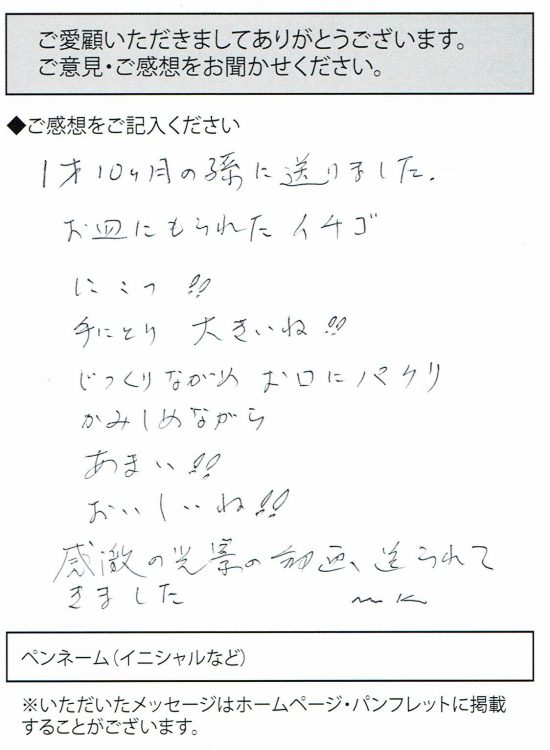 ご愛顧いただきましてありがとうございます。
ご意見・ご感想をお聞かせください。
◆ご感想をご記入ください
1才10ヶ月の孫に送りました.
お皿にもられたイチゴ
にこっ!!
手にとり 大きいね!!
じっくりながめ お口にパクリ
かみしめながら
あまい!!
おいしいね!!
感激の光景の動画、送られて
きました
K
ペンネーム(イニシャルなど)
※いただいたメッセージはホームページ・パンフレットに掲載
することがございます。